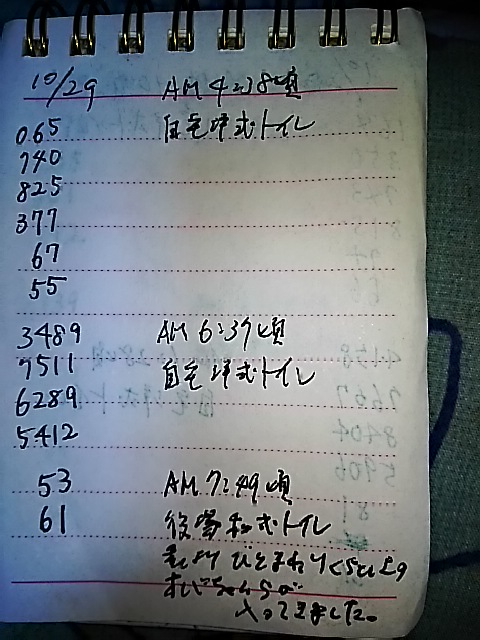 10/29 AM 4:38頃
065 自宅洋式トイレ
740
825
377
67
55
3489 AM 6:37頃
7511 自宅洋式トイレ
6289
5412
53 AM 7:49頃
61 後 和式トイレ
ひとまわりくらい上の
おばちゃんらが
入ってきました。